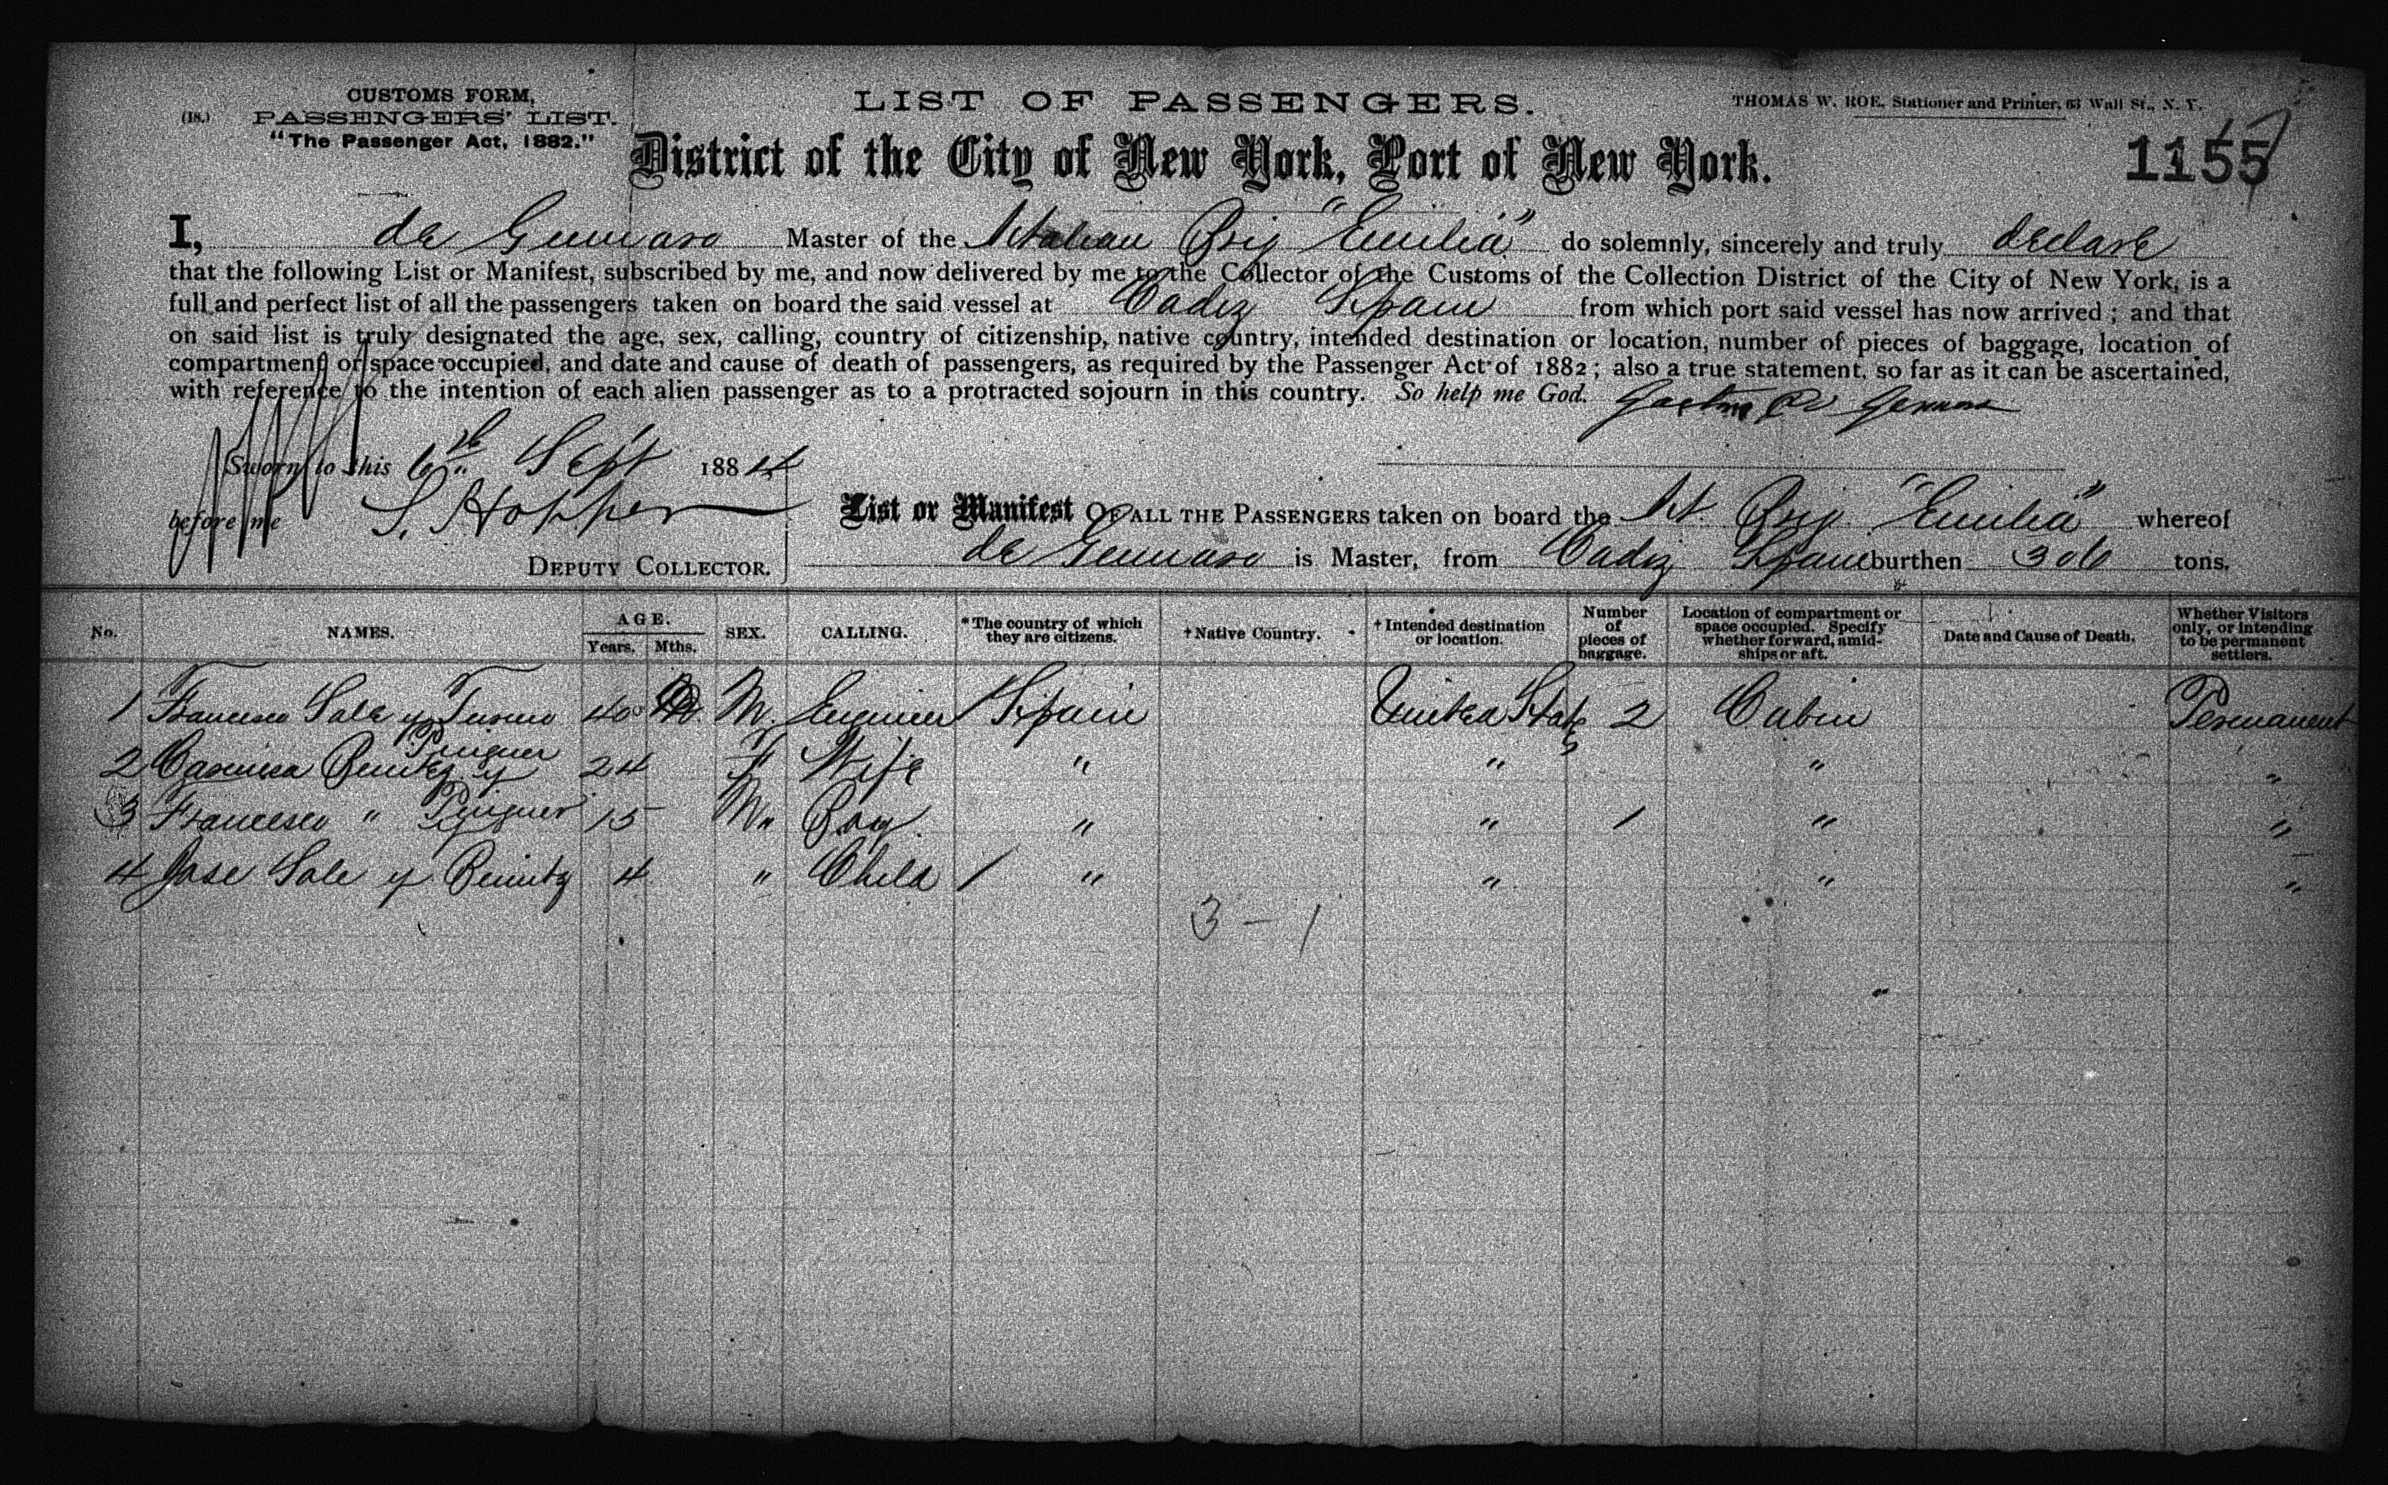 CUSTOMS FORM,
(18.) PASSENGERS' LIST.
"The Passenger Act, 1882."
LIST OF PASSENGERS.
THOMAS W. ROE, Stationer and Printer, 63 Wall St., N. Y.
District of the City of New York, Port of New York.
1155
I, de Gennaro Master of the Italian Brig "Emilia" do solemnly, sincerely and truly declare
that the following List or Manifest, subscribed by me, and now delivered by me to the Collector of the Customs of the Collection District of the City of New York, is a
full and perfect list of all the passengers taken on board the said vessel at Cadiz Spain from which port said vessel has now arrived; and that
on said list is truly designated the age, sex, calling, country of citizenship, native country, intended destination or location, number of pieces of baggage, location of
compartment or space occupied, and date and cause of death of passengers, as required by the Passenger Act of 1882; also a true statement, so far as it can be ascertained,
with reference to the intention of each alien passenger as to a protracted sojourn in this country. So help me God.
Gennaro
Sworn to this 6th Sept 1884
before me S. Hopper
DEPUTY COLLECTOR.
List or Manifest OF ALL THE PASSENGERS taken on board the It. Brig "Emilia" whereof
de Gennaro is Master, from Cadiz Spain burthen 306 tons.
No. NAMES. AGE. Years. Mths. SEX. CALLING. *The country of which they are citizens. †Native Country. †Intended destination or location. Number of pieces of baggage. Location of compartment or space occupied. Specify whether forward, amidships or aft. Date and Cause of Death. Whether Visitors only, or intending to be permanent settlers.
1 Francesco Sale y 40 M. Engineer / Spain United States 2 Cabin Permanent
2 Benitez y 24 F Wife " " " "
3 Francesco " 15 M " Boy " " 1 " "
4 Jose Sale y Benitz 4 " Child / " " " "
3 - 1